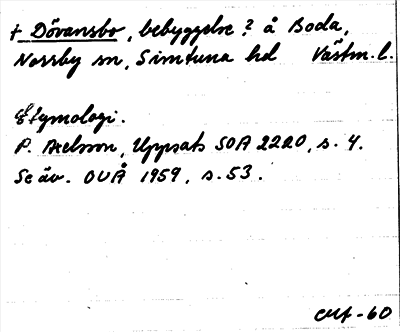 † Dövansbo, bebyggelse? å Boda,
Norrby sn, Simtuna hd Västm. l.
Etymologi.
P. Axelsson, Uppsats SOA 2220, s. 4.
Se äv. OUÅ 1959, s. 53.
-60